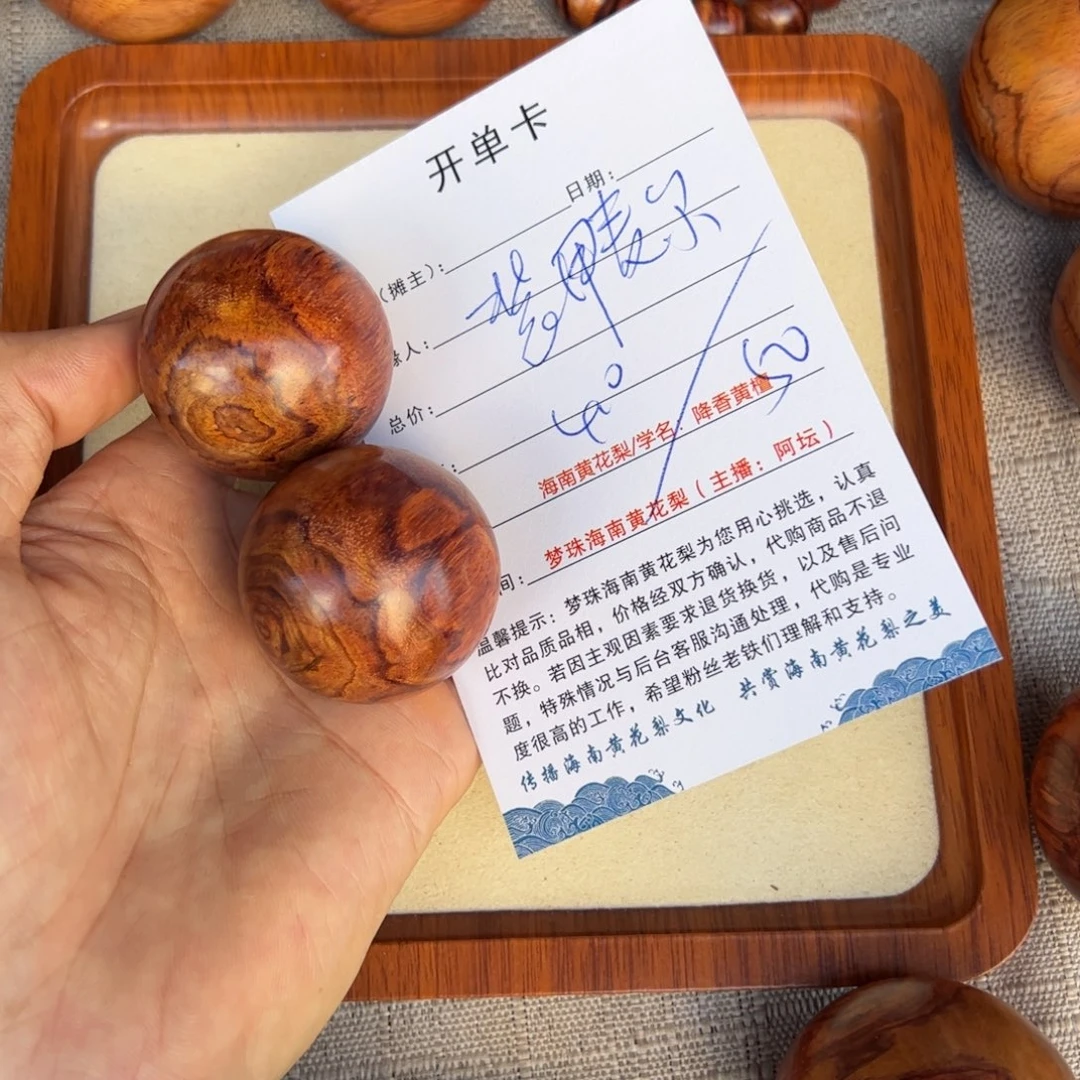 开单卡
日期:
(摊主):
人:
总价:
40
50
海南黄花梨/学名:降香黄檀
梦珠海南黄花梨(主播:阿坛)
间:
温馨提示:梦珠海南黄花梨为您用心挑选,认真
比对品质品相,价格经双方确认,代购商品不退
不换。若因主观因素要求退货换货,以及售后问
题,特殊情况与后台客服沟通处理,代购是专业
度很高的工作,希望粉丝老铁们理解和支持。
传播海南黄花梨文化 共赏海南黄花梨之美